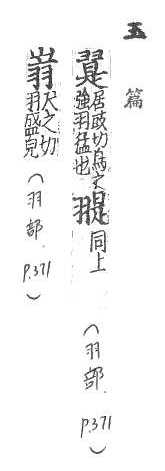 玉篇
居豉切鳥之
強羽猛也
翨同上（羽部．P.371）
尺之切
羽盛皃（羽部．P.371）